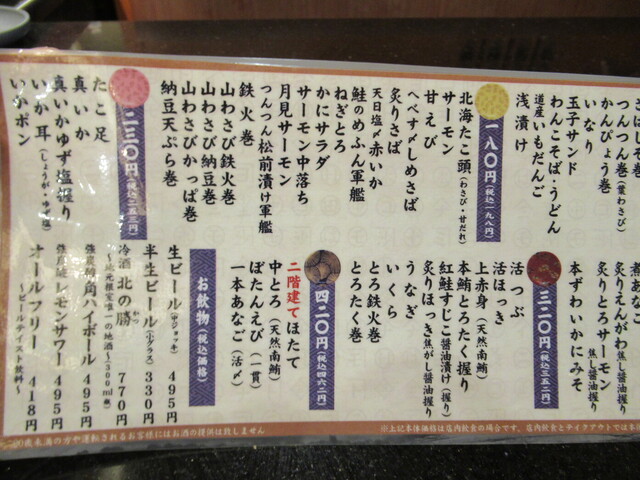 つんつん巻(葉わさび)
かんぴょう巻
いなり
玉子サンド
わんこそば・うどん
道産いもだんご
浅漬け
一八〇円(税込一九八円)
北海たこ頭(わさび・甘だれ)
サーモン
甘えび
へべす〆しめさば
炙りさば
天日塩〆赤いか
鮭のめふん軍艦
ねぎとろ
かにサラダ
サーモン中落ち
月見サーモン
つんつん松前漬け軍艦
鉄火巻
山わさび鉄火巻
山わさび納豆巻
山わさびかっぱ巻
納豆天ぷら巻
二三〇円(税込二五三円)
たこ足
真いか
真いかゆず塩握り
いか耳(しょうが・ゆず塩)
いかポン
煮あなご
炙りえんがわ焦し醤油握り
炙りとろサーモン焦し醤油握り
本ずわいかにみそ
三二〇円(税込三五二円)
活つぶ
活ほっき
上赤身(天然南鮪)
本鮪とろたく握り
紅鮭すじこ醤油漬け(握り)
炙りほっき焦がし醤油握り
うなぎ
いくら
とろ鉄火巻
とろたく巻
四二〇円(税込四六二円)
二階建てほたて
中とろ(天然南鮪)
ぼたんえび(一貫)
一本あなご(活〆)
お飲物(税込価格)
生ビール(中ジョッキ) 495円
半生ビール(小グラス) 330円
冷酒 北の勝 770円
～地元根室唯一の地酒～300ml瓶
角ハイボール 495円
レモンサワー 495円
オールフリー 418円
～ビールテイスト飲料～
※上記本体価格は店内飲食の場合です。店内飲食とテイクアウトでは本体
20歳未満の方や運転されるお客様にはお酒の提供は致しません